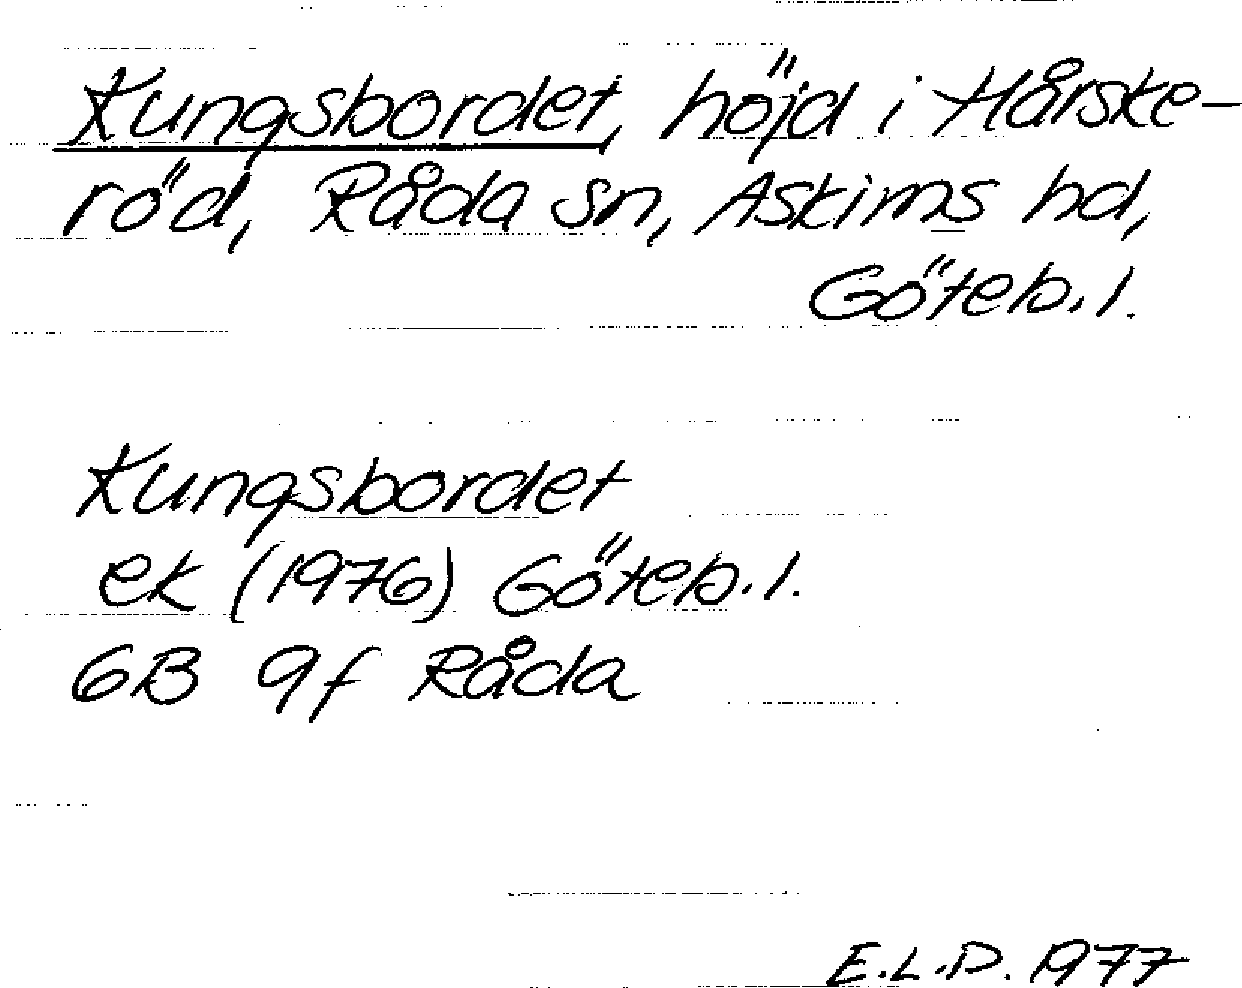 Kungsbordet, höjd i Hårske-
röd, Råda sn, Askims hd,
Göteb.l.
Kungsbordet
ek (1976) Göteb.l.
6B 9f Råda
E.L.D. 1977